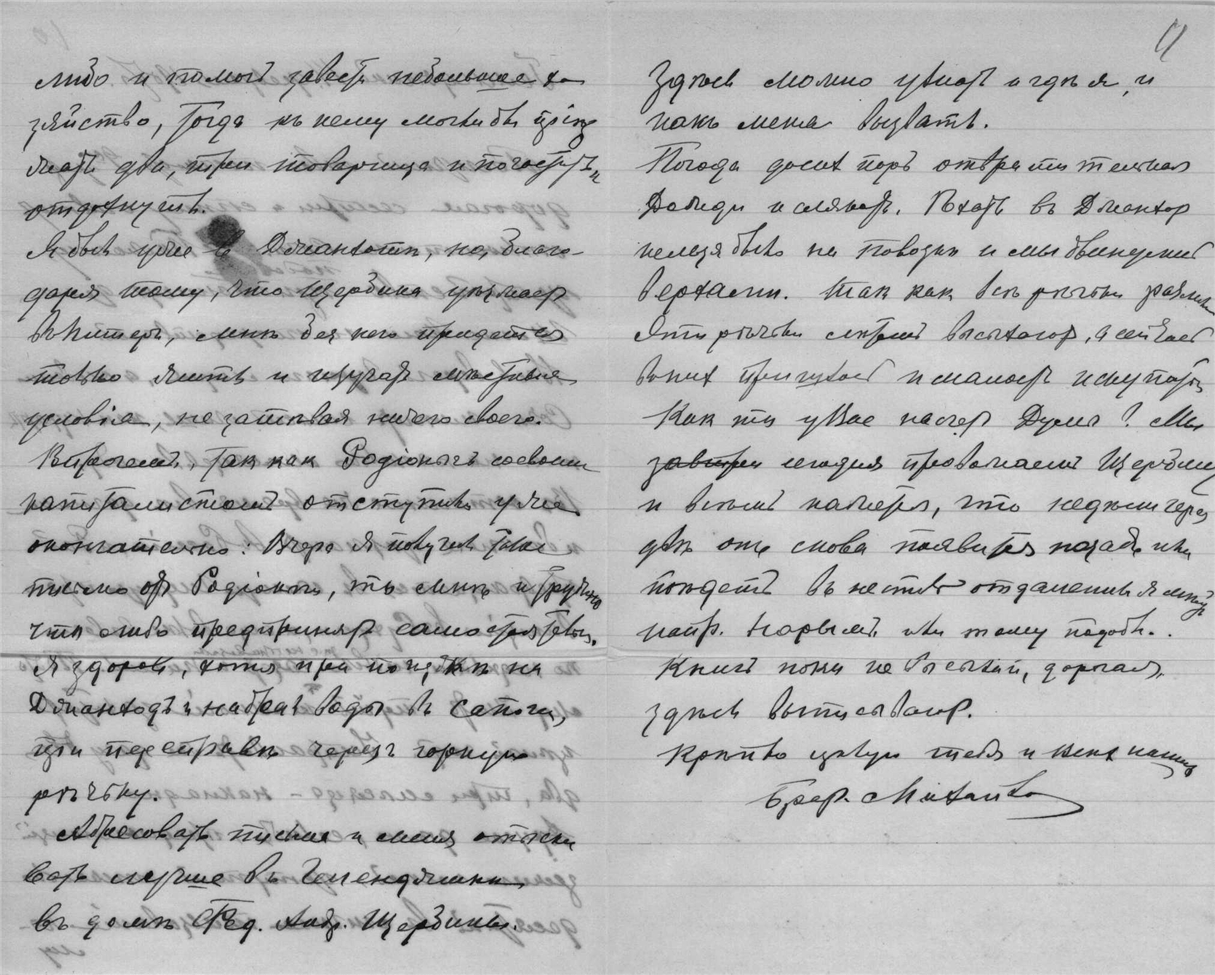 либо и помочь завести небольшое хо
зяйство, тогда къ нему могли бы пріѣз
жать два, три товарища и погостить и
отдохнуть.
Я былъ уже въ Джанхотѣ, но, благо-
даря тому, что Щербина уѣзжаетъ
въ Питеръ, мнѣ безъ него придется
только жить и изучать мѣстныя
условія, не затѣвая ничего своего.
Впрочемъ, такъ какъ Родіонычъ со своимъ
капиталистомъ отступилъ уже
окончательно: Вчера я получилъ такое
письмо отъ Родіоныча, то мнѣ и трудно
что либо предпринять самостоятельно.
Я здоровъ, хотя при поѣздкѣ на
Джанходъ и набралъ воды въ сапоги,
при переправѣ черезъ горную
рѣчку.
Адресовать письма и меня отыски
вать лучше въ Геленджикѣ
въ домѣ Ѳед. Анд. Щербины.
11
Здѣсь можно узнать и гдѣ я, и
какъ меня вызвать.
Погода до сихъ поръ отвратительная
Дожди и слякоть. Ѣхать въ Джанхот
нельзя было на повозкѣ и мы двинулись
верхами. Такъ как всѣ рѣчки разлились
Эти рѣчки лѣтомъ высыхаютъ, а сейчасъ
въ нихъ
Какъ то у Вас насчетъ Думы? Мы
завтра сегодня провожаемъ Щербину
и возможно, что недѣли черезъ
двѣ онъ снова появится назадъ или
поѣдетъ въ мѣста отдаленныя
напр. Нарымъ или тому подобн..
Книгъ пока не высылай, дорогая,
здѣсь выписываютъ.
Крѣпко цѣлую тебя и всѣхъ нашихъ
Братъ Михаилъ